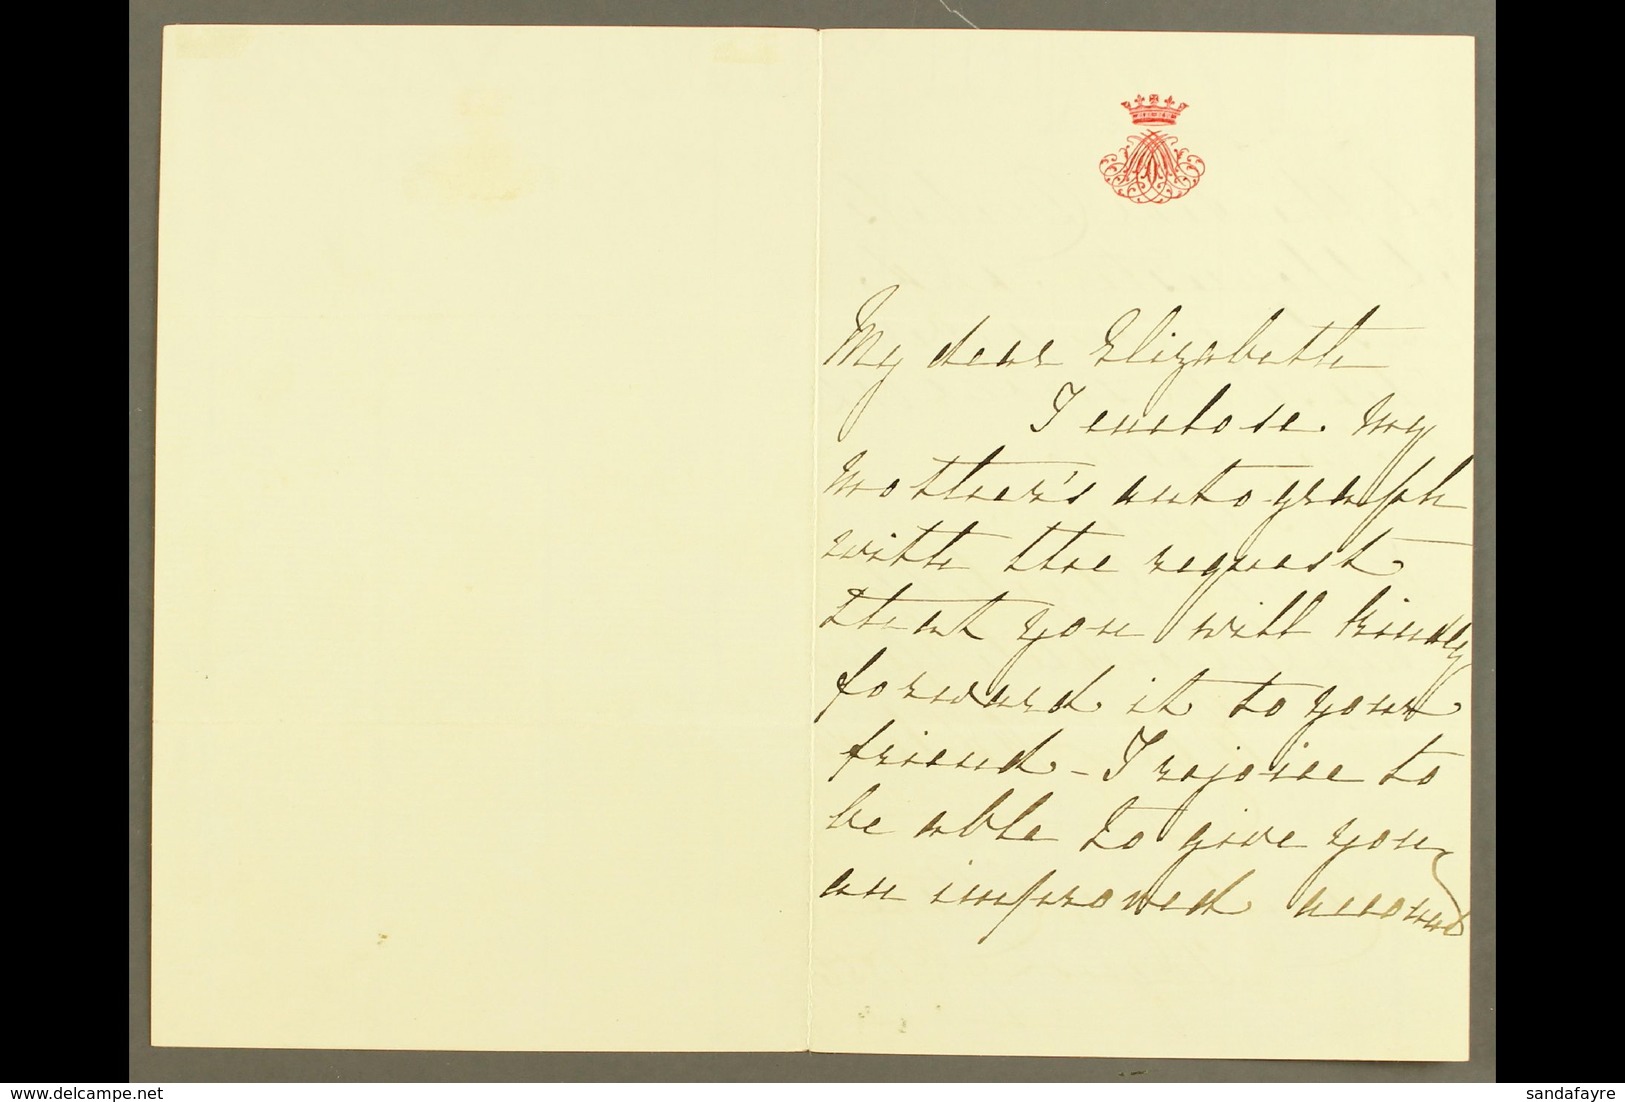 My dear Elizabeth
I enclose my
mother's autograph
with the request
that you will kindly
forward it to your
friend - I rejoice to
be able to give you
an improved account
www.delcampe.net
sandafayre